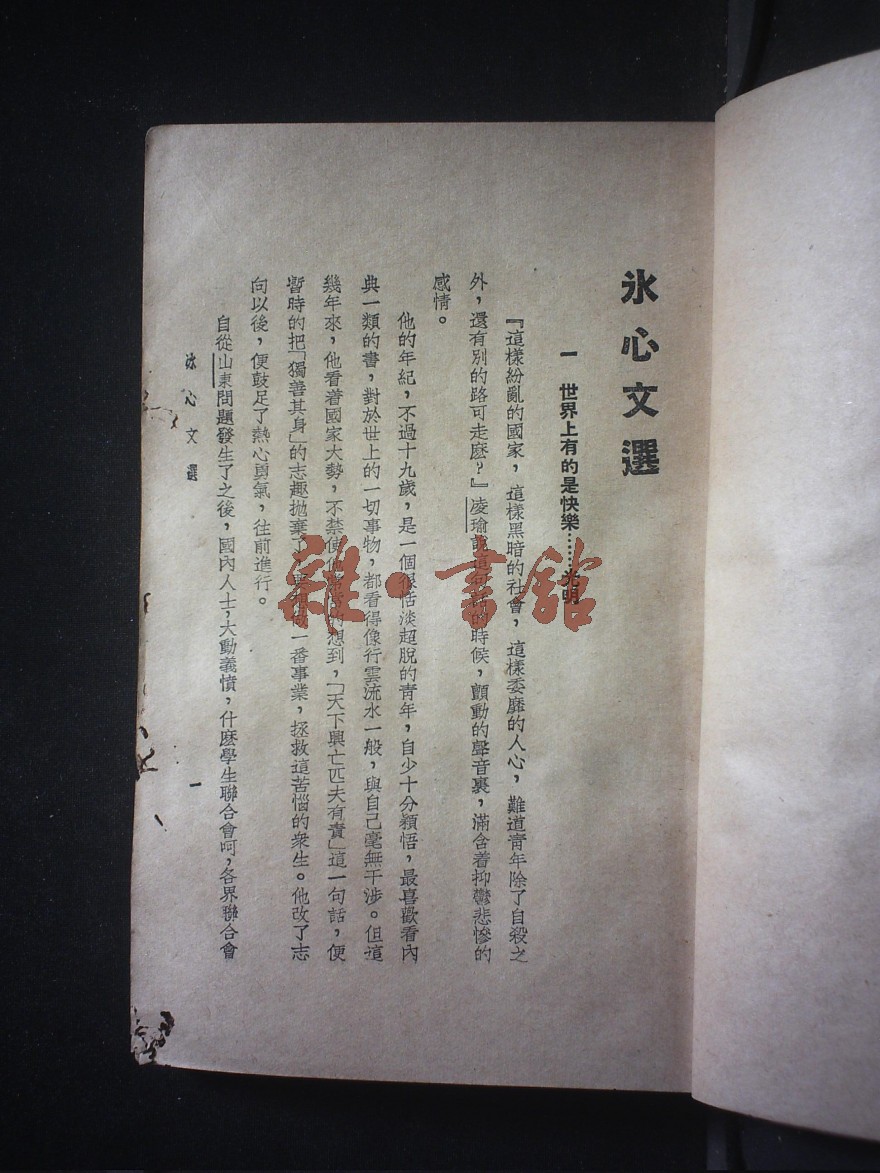 冰心文選
一 世界上有的是快樂……光明
『這樣紛亂的國家，這樣黑暗的社會，這樣委靡的人心，難道青年除了自殺之
外，還有別的路可走麽？』凌瑜說這句話的時候，顫動的聲音裏，滿含着抑鬱悲慘的
感情。
他的年紀，不過十九歲，是一個很恬淡超脫的青年，自少十分穎悟，最喜歡看內
典一類的書，對於世上的一切事物，都看得像行雲流水一般，與自己毫無干涉。但這
幾年來，他看着國家大勢，不禁使他常常的想到，「天下興亡匹夫有責」這一句話，便
暫時的把「獨善其身」的志趣拋棄了，要想做一番事業，拯救這苦惱的衆生。他改了志
向以後，便鼓足了熱心勇氣，往前進行。
自從山東問題發生了之後，國內人士，大動義憤，什麽學生聯合會呵，各界聯合會
冰心文選
一
雜·書館